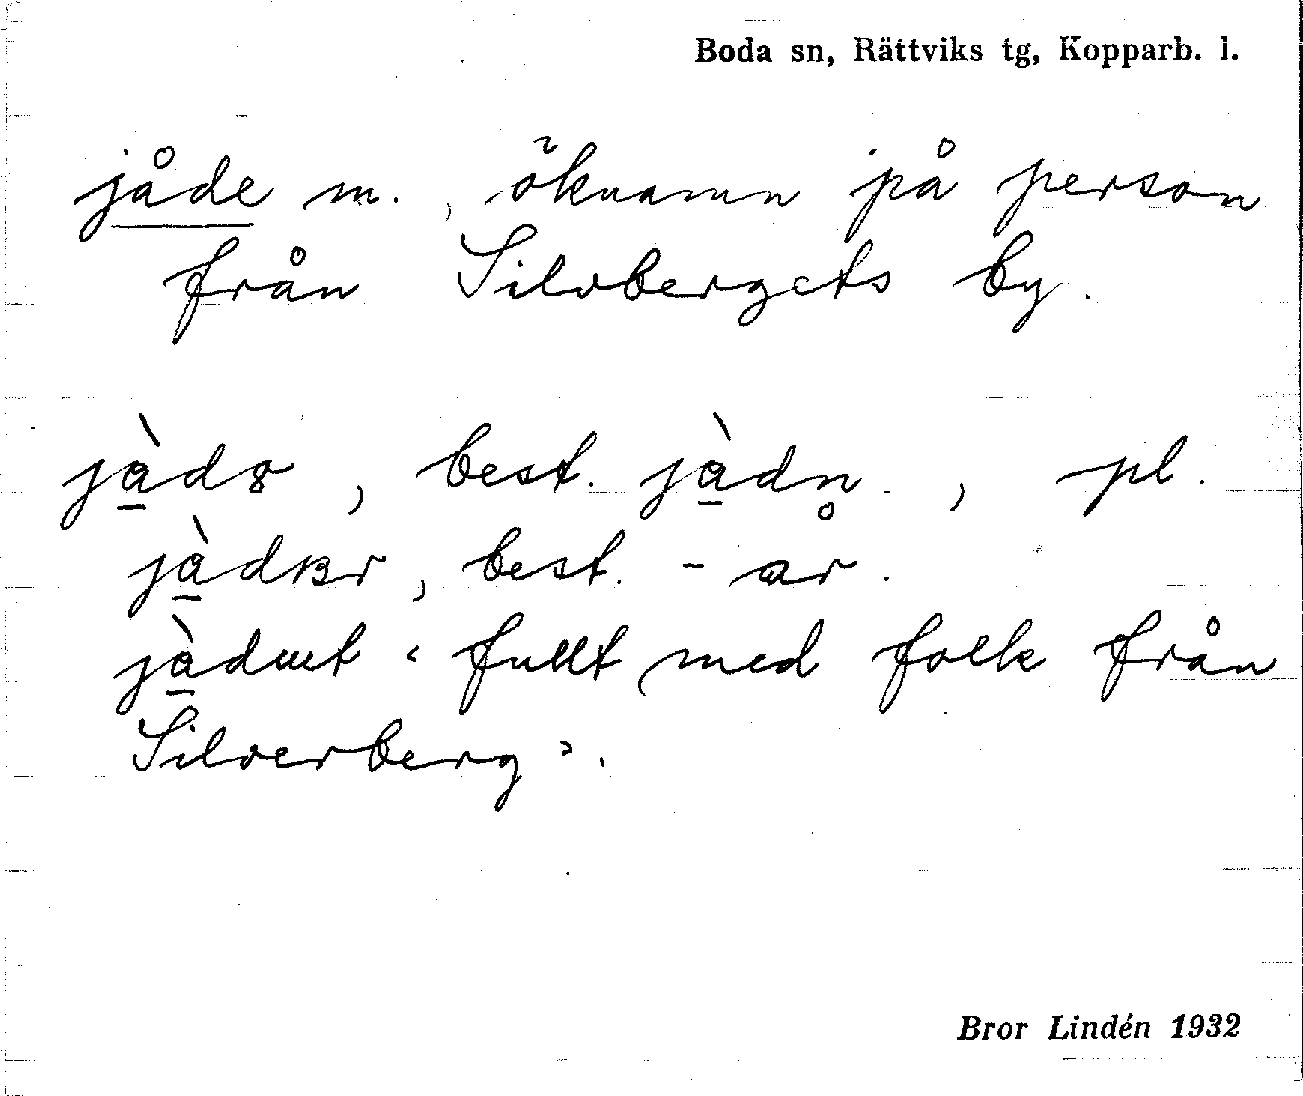 Boda sn, Rättviks tg, Kopparb. l.
jåde m., öknamn på person
från Silvbergets by.
jà̱d8, best. jà̱dn̥., pl.
jà̱dʙr, best. -ar.
jà̱dɯt ‹fullt med folk från
Silverberg›.
Bror Lindén 1932